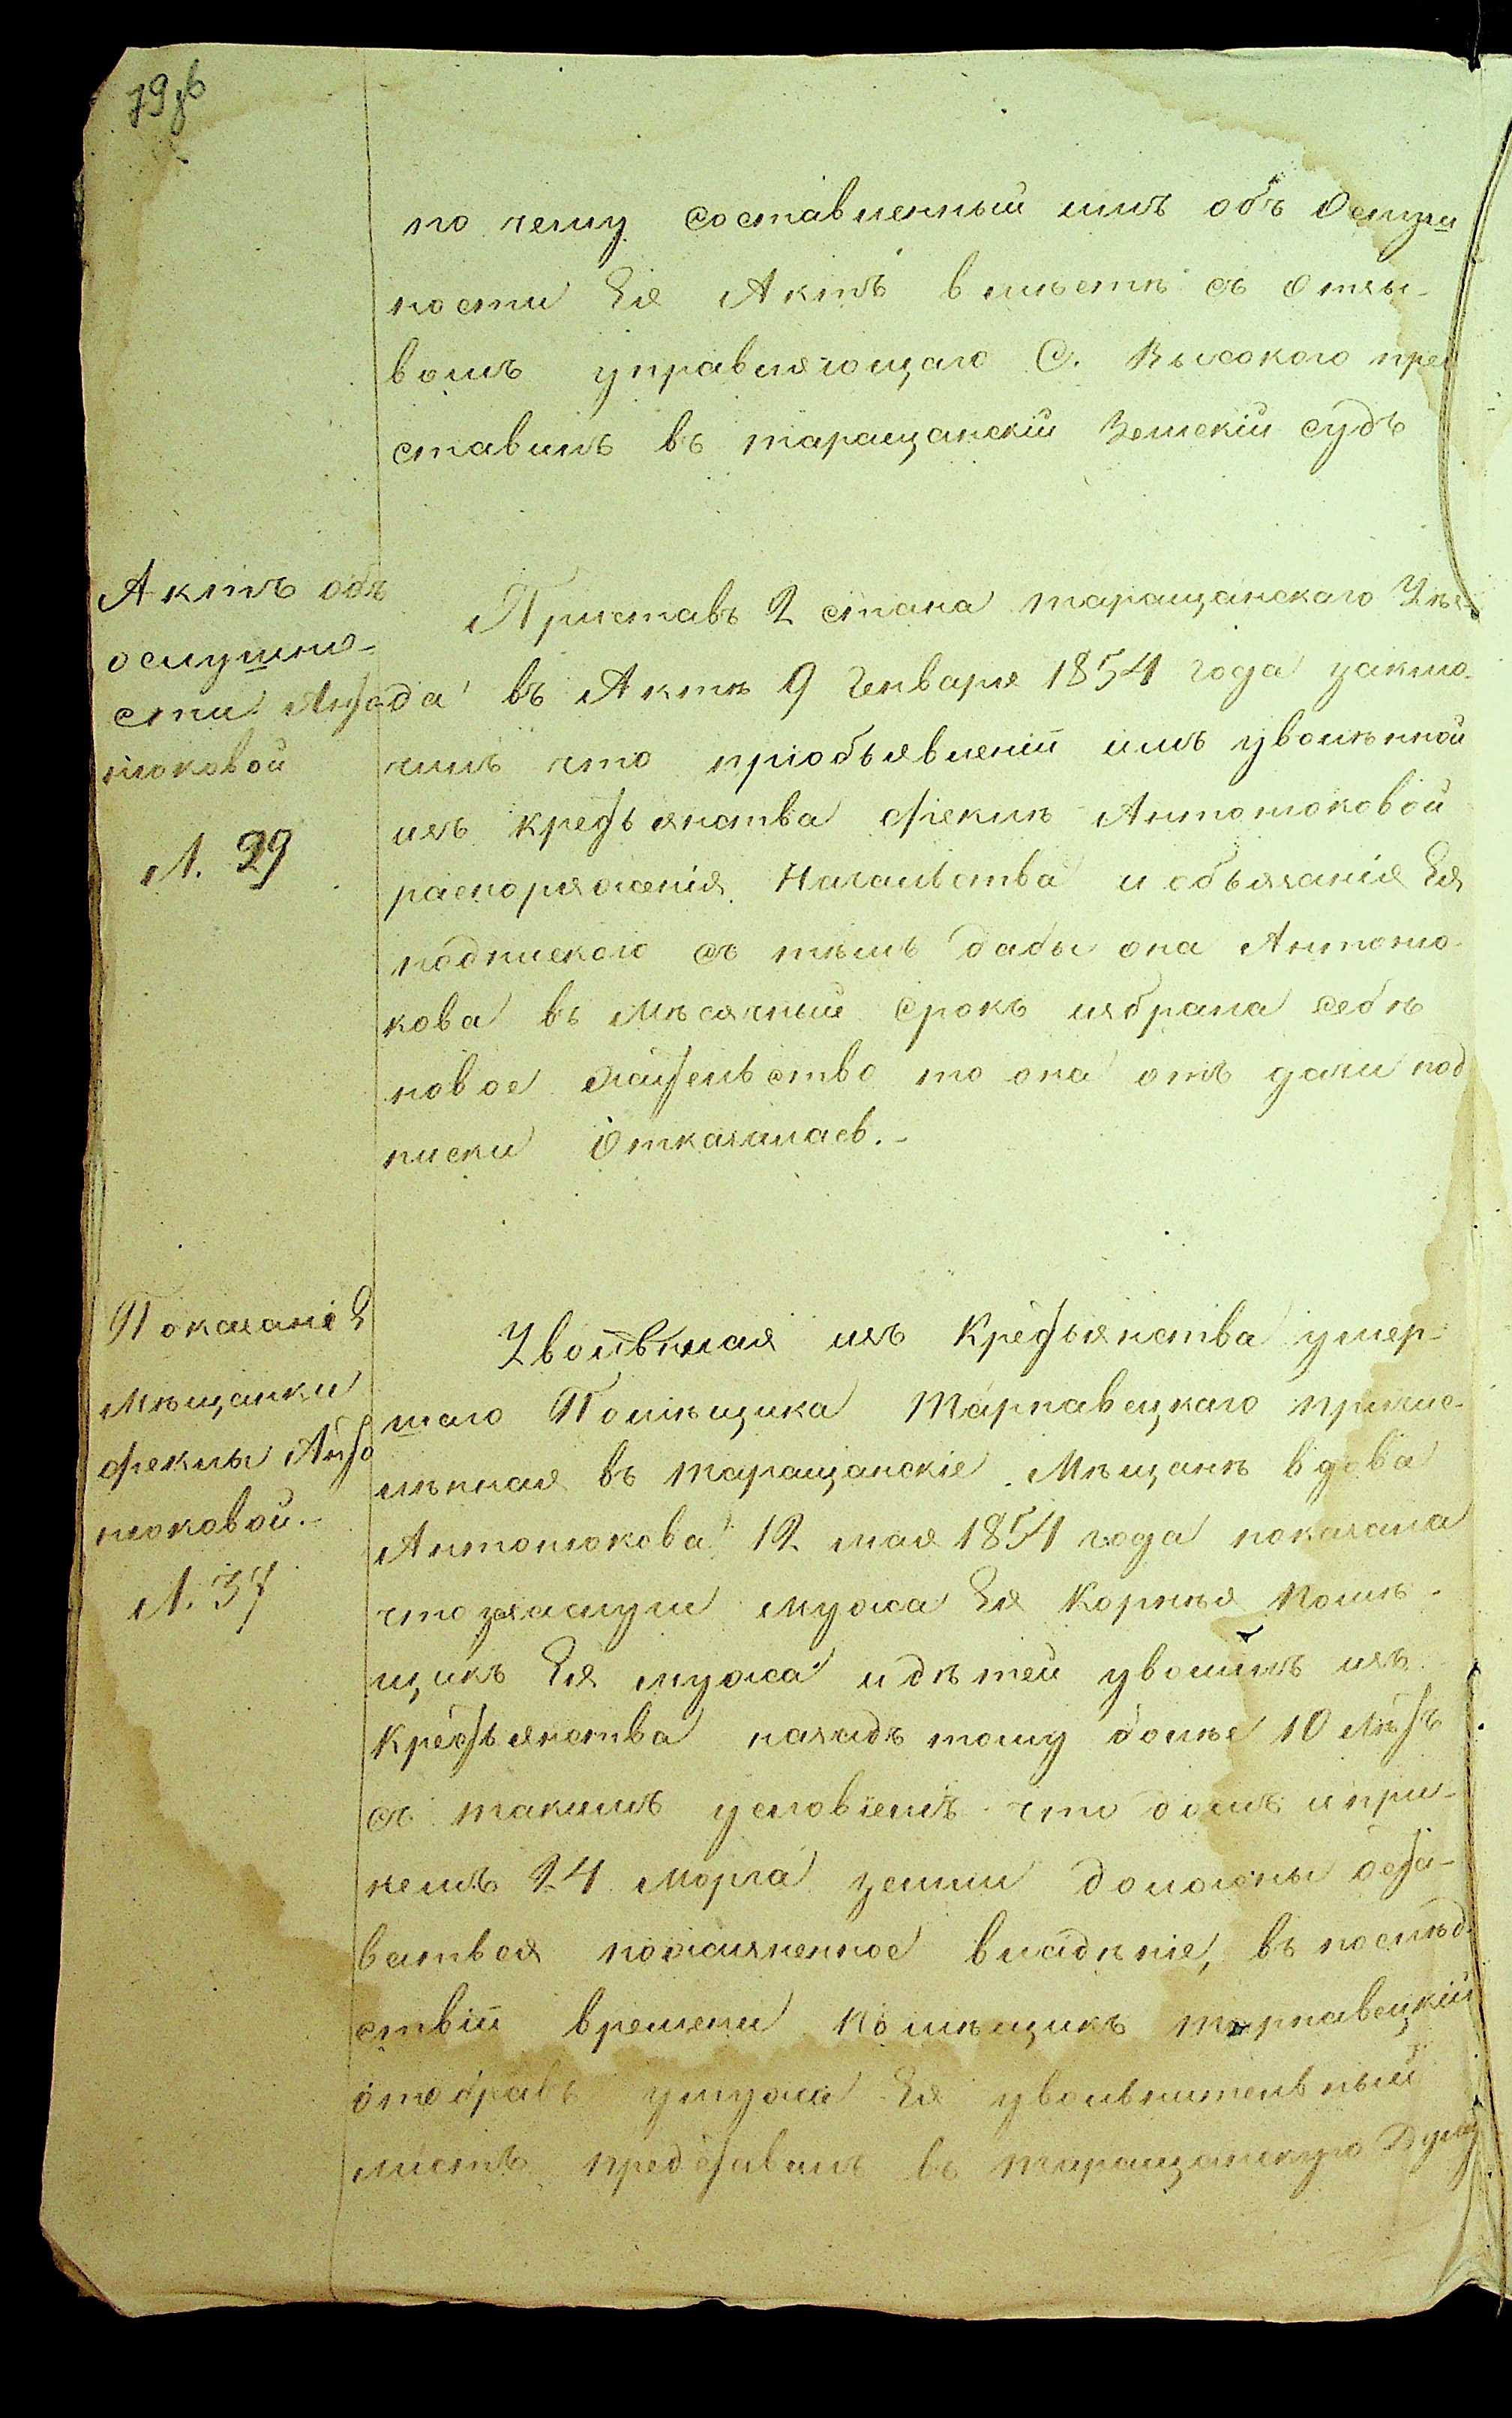 79об
по чему составленный имъ объ Ослуш
ности Ея Актъ вместѣ съ отзы-
вомъ управляющаго С. Высокого пред
ставилъ въ таращанскій Земскій судъ
Актъ объ
ослушно-
сти Анто
нюковой
Л. 29
Приставъ 2 стана таращанскаго Уѣз-
да въ Актѣ 9 Генваря 1854 года заклю-
чилъ что приобъявленій имъ уволѣнной
изъ крестьянства Феклѣ Антонюковой
распоряженія Начальства и обьязанія Ея
подпискою съ тѣмъ дабы она Антоню-
кова въ Мѣсячный срокъ избрала себѣ
новое жительство то она отъ дачи под
писки Отказалась.-
Показаніе
Мѣщанки
Феклы Анто
нюковой.-
Л. 37
Уволѣнная изъ Крестьянства умер-
шаго Помѣщика Тарнавецкаго причис-
лѣнная въ таращанскіе Мѣщанѣ вдова
Антонюкова 12 мая 1854 года показала
что зазаслуги мужа Ея Корнѣя Помѣ-
щикъ Ея мужа и дѣтей уволилъ изъ
Крестьянства назадъ тому болѣе 10 лѣтъ
съ такимъ условіемъ что домъ и при-
немъ 24 Морга земли должны оста-
ваться пожизненное владѣніе, въ послѣд-
ствіи времени Помѣщикъ Тарнавецкій
отобравъ умужа Ея увольнительный
листъ представилъ въ таращанскую Думу